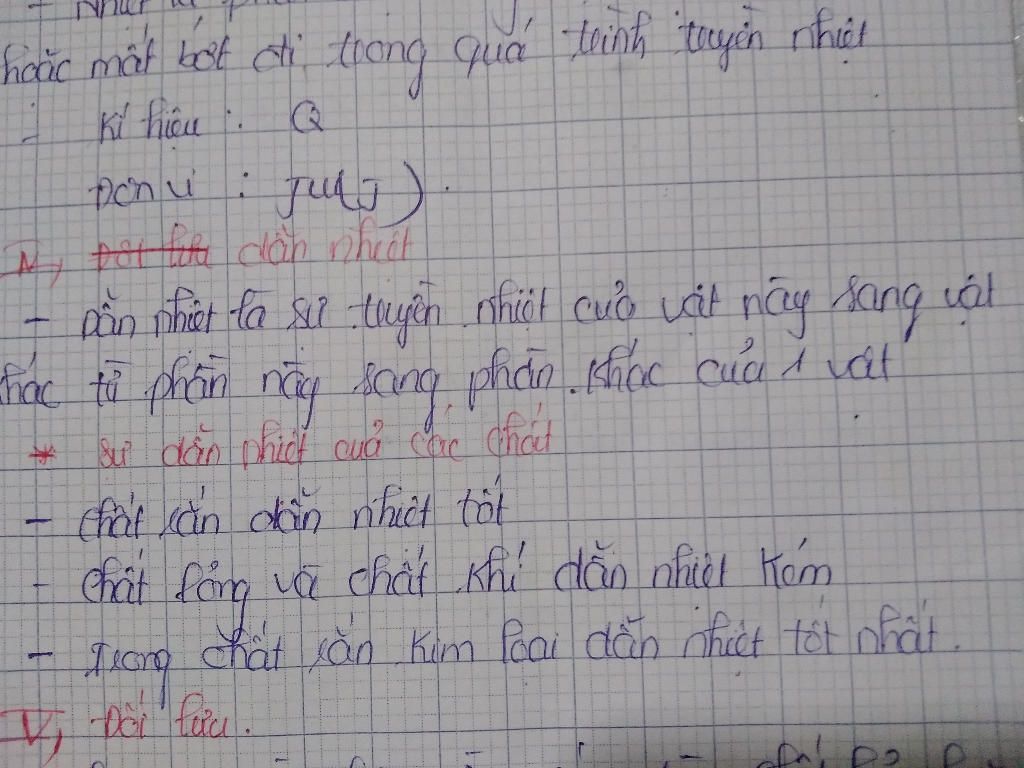 - Nhiệt
hoặc mất bớt đi trong quá trình truyền nhiệt
- Kí hiệu : Q
Đơn vị : Ju(J).
IV, Đối lưu dẫn nhiệt
- Dẫn nhiệt là sự truyền nhiệt của vật này sang vật
khác từ phần này sang phần khác của 1 vật
* sự dẫn nhiệt của các chất
- chất rắn dẫn nhiệt tốt
- chất lỏng và chất khí dẫn nhiệt kém
- Trong chất rắn kim loại dẫn nhiệt tốt nhất.
V, Đối lưu.